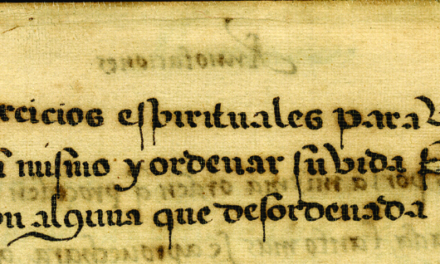 rcicios espirituales para v
mismo y ordenar su vida
on alguna que desordenada